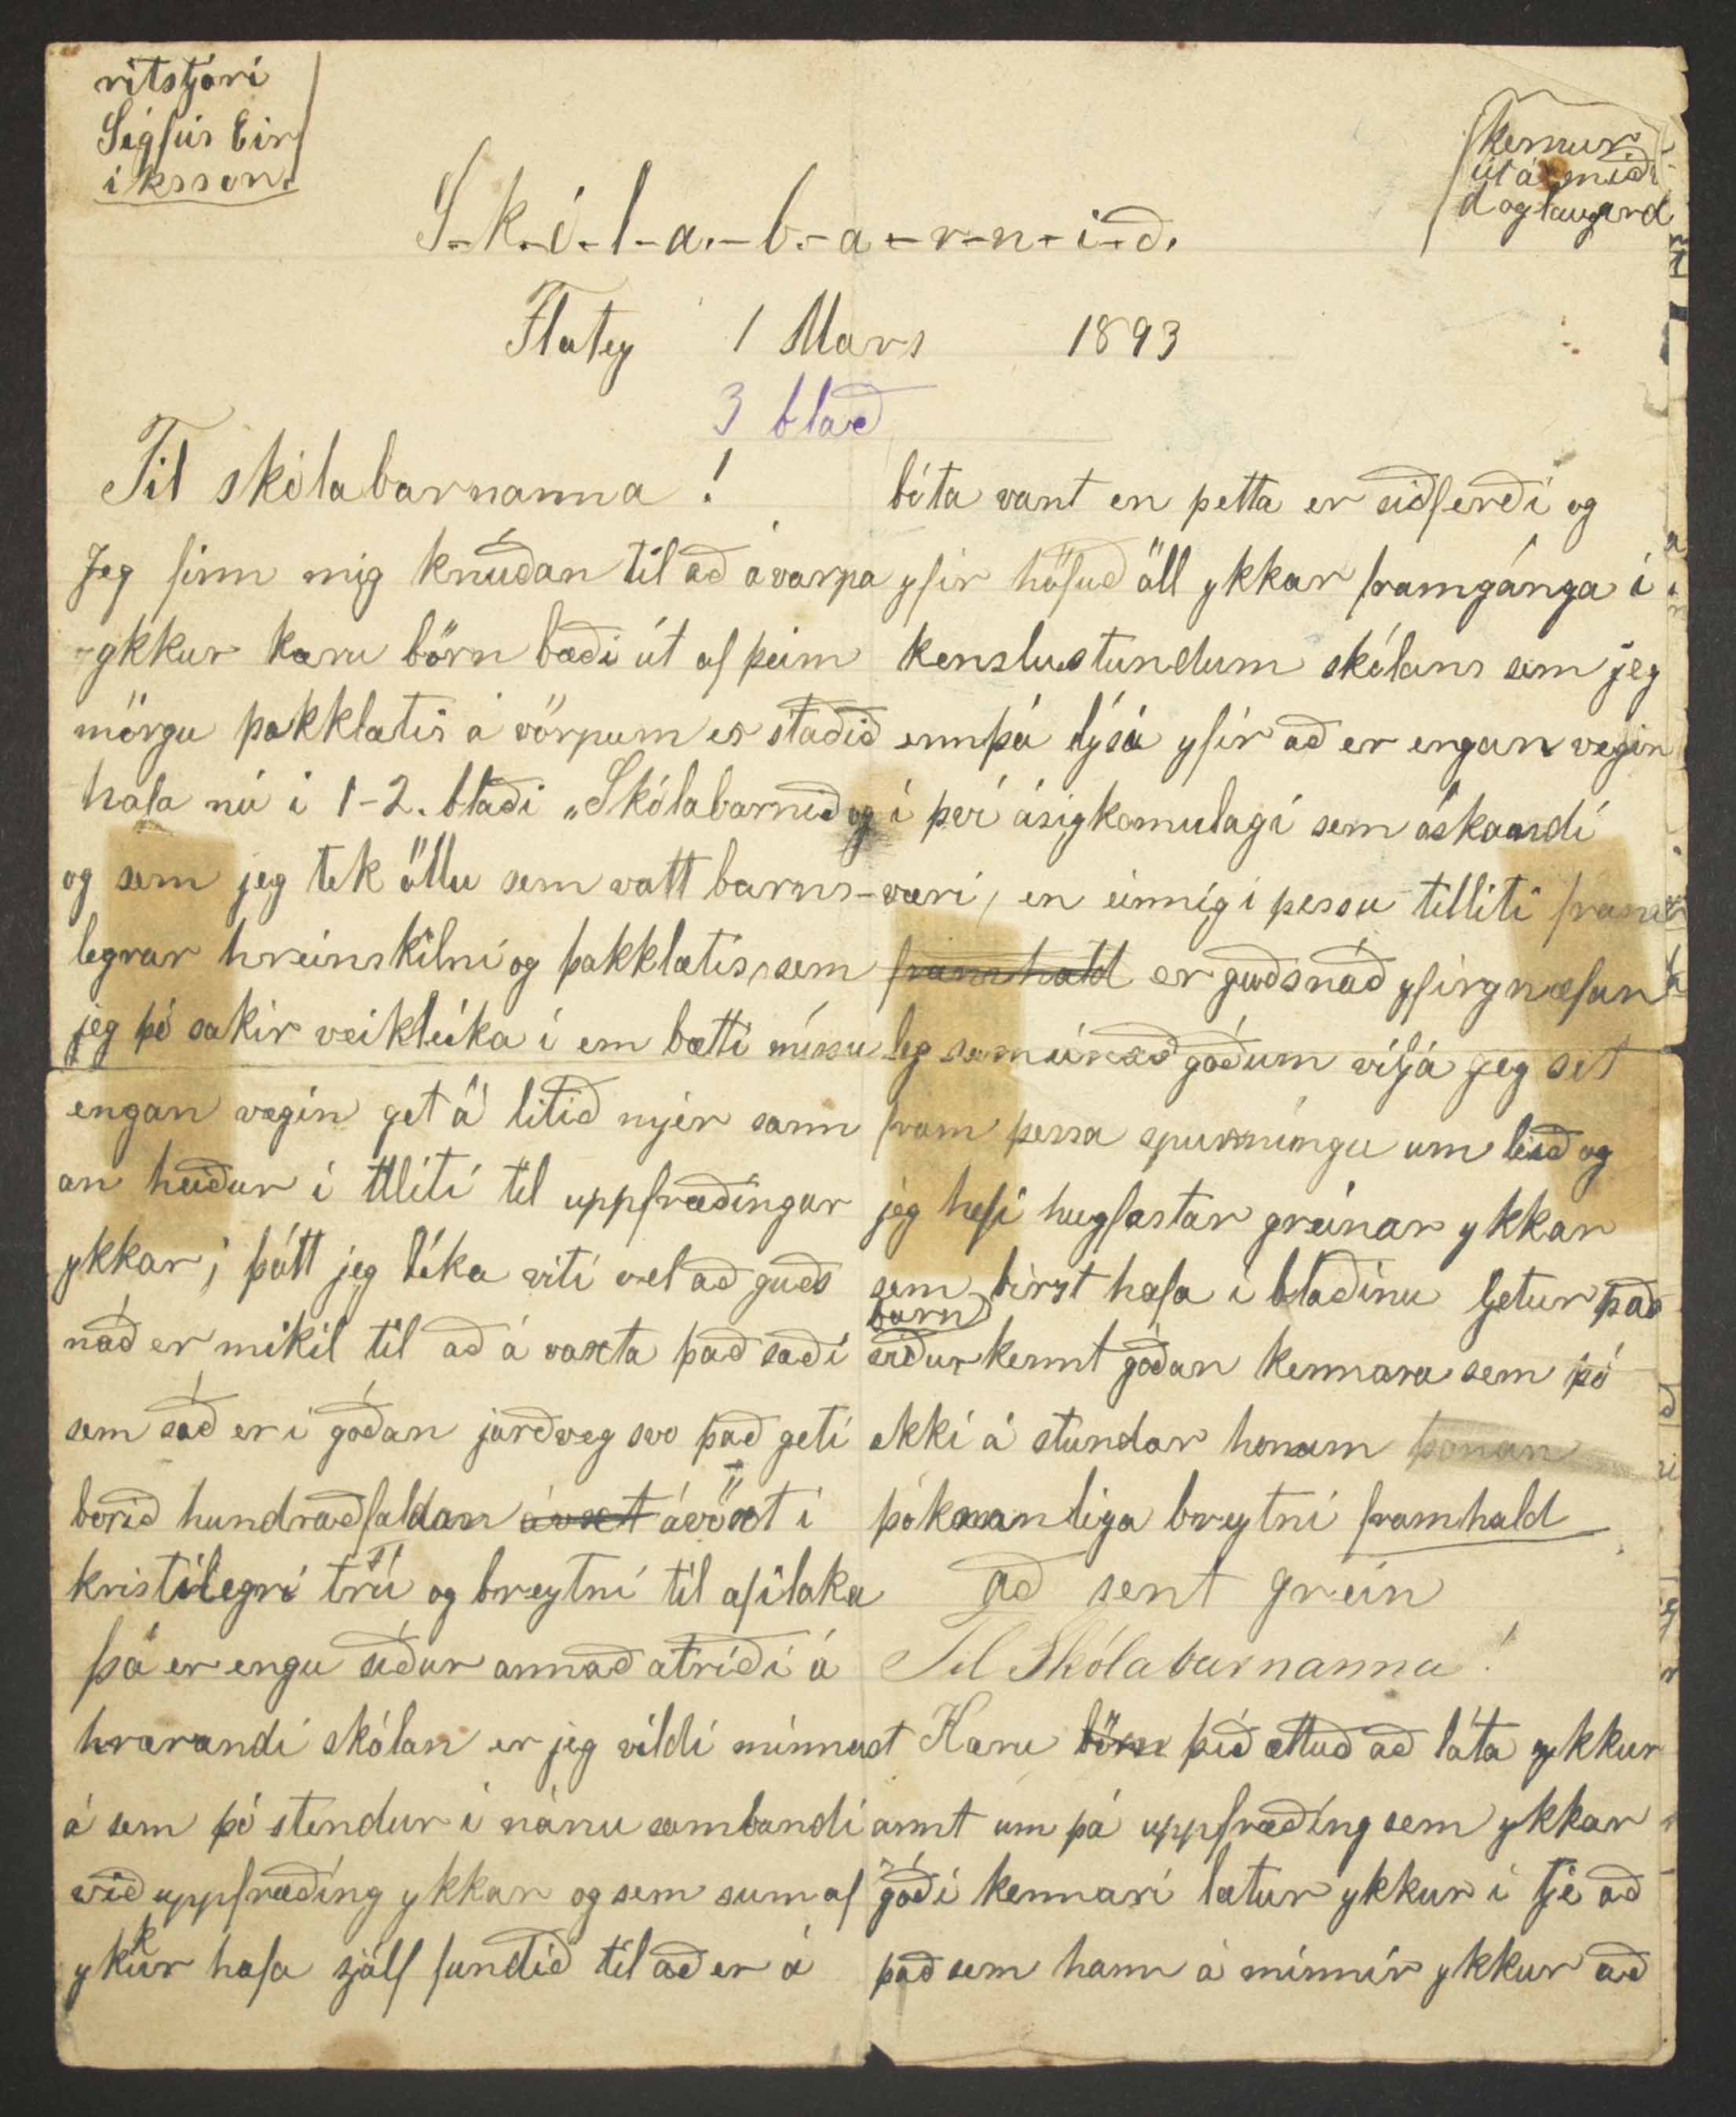 ritstjóri
Sigfús Eir
íksson.
kemur
út á mið
d og laugard
S-k-ó-l-a-b-a-r-n-i-ð.
Flatey 1 Mars 1893
3 blað
Til skólabarnanna!
Jeg finn mig knúðan til að ávarpa
ykkur kæru börn bæði út af þeim
mörgu þakklætis á vörpum er staðið
hafa nú í 1-2. blaði „Skólabarnið og
og sem jeg tek öllu sem vott barns-
legrar hreinskilni og þakklætis, sem
jeg þó sakir veikleika í em bætti mínu
engan vegin get á litið mjer sann
an heiður í tlliti til uppfræðingar
ykkar; þótt jeg líka viti vel að guðs
náð er mikil til að á vaxta það sæði
sem sáð er í góðan jarðveg svo það geti
borið hundraðfaldan ávxt ávöxt í
kristilegri trú og breytni til afilaka
þá er engu síður annað atriði á
hrærandi skólan er jeg vildi minnast
á sem þó stendur í nánu sambandi
við uppfræðing ykkar og sem sum af
ykkur hafa sjálf fundið til að er á
bóta vant en þetta er siðferði og
yfir höfuð öll ykkar framgánga í
kenslustundum skólans sem jeg
ennþá lýsá yfir að er engan vegin
í því ásigkomulagi sem óskandi
væri, en einnig í þessu tilliti fram
framhald er guðsnáð yfirgnæfan
leg sem únað góðum viljá jeg set
fram þessa spurníngu um leið og
jeg hefi hugfastar greinar ykkar
sem birst hafa í blaðinu getur það
barn
siður kennt góðan kennara sem þó
ekki á stundar honum þonan
þóknanliga breytni framhald
að sent grein
Til Skólabarnanna!
Kæru börn þið ættuð að láta ykkur
annt um þá uppfræðing sem ykkar
góði kennari lætur ykkur í tje að
það sem hann á minnir ykkur að